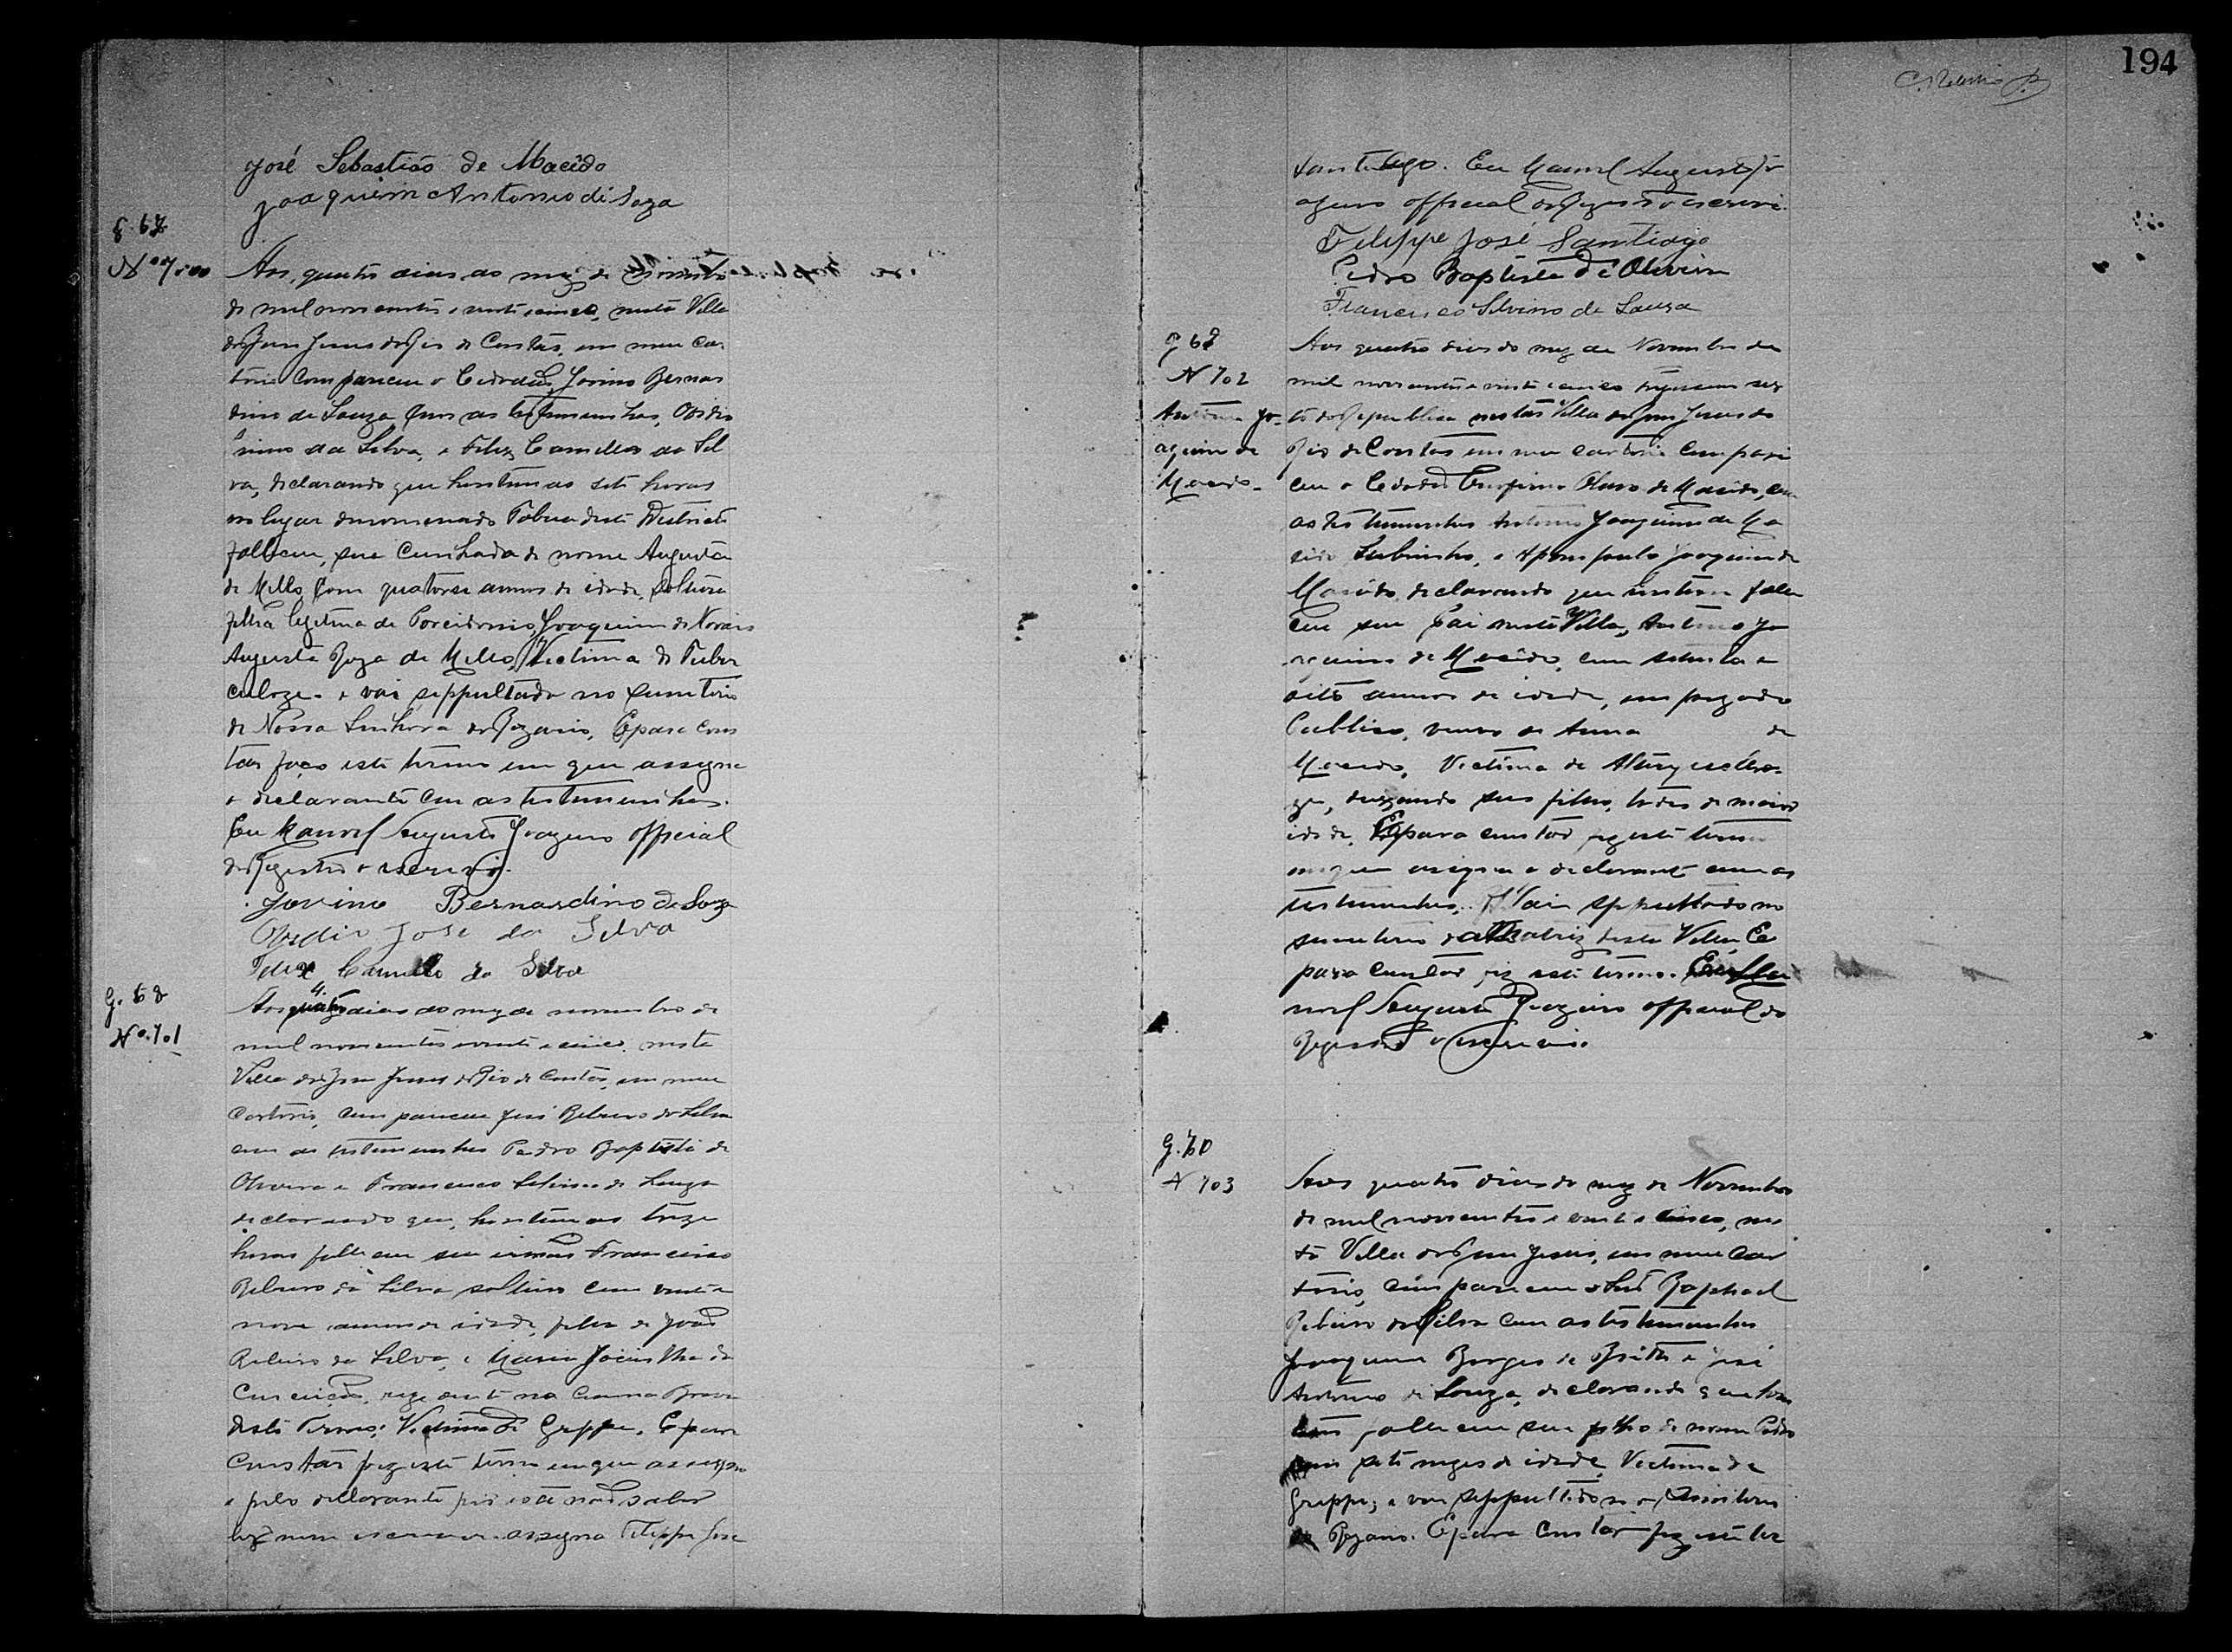 194
José Sebastião de Macêdo
Joaquim Antonio di Soza
G. 67
Nº 700
Aos, quatro dias do mez de novembro
de mil novecentos e vinte e cinco, nesta Villa
do Bom Jesus do Rio de Contas, em meu car
torio compareceu o Cidadão, Jovino Bernar
dino de Souza, com as testemunhas, Ovidio
da Silva, e Felix Camillo da Sil
va, declarando que hontem as sete horas
no lugar denominado deste Districto
falleceu, sua Cunhada de nome Augusta
de Mello, com quatorse annos de idade, solteira
filha legitima de Joaquim de Novais
Augusta Roza de Mello, Victima de Tuber
culoze. e vai seppultada no semiterio
de Nossa Senhora do Rozario. E para cons
tar faço este termo em que assigna
o declarante com as testemunhas.
Eu Manoel Augusto Joazeiro official
do Registro o escrevi.
Jovino Bernardino de Soza
Ovidio José da Silva
Felix Camillo da Silva
G. 68
Nº 701
Aos quatro 4. dias do mez de novembro de
mil novecentos e vinte e cinco, nesta
Villa do Bom Jesus do Rio de Contas, em meu
Cartorio, compareceu José Ribeiro da Silva
com as testemunhas Pedro Baptista de
Oliveira e Francisco Silvino de Souza
declarando que, hontem as treze
horas falleceu seu irmão Francisco
Ribeiro da Silva solteiro com vinte e
nove annos de idade, filho de João
Ribeiro da Silva, e Maria Jacintha da
Conceição, rezidente na Canna Brava
deste Termo; Victima de Grippe. E para
constar fiz este termo em que assigna
e pelo declarante por este não saber
ler nem escrever assigna Felippe José
Santiago. Eu Manoel Augusto Jo
azeiro official do Registro o escrevi.
Felippe José Santiago
Pedro Baptista de Oliveira
Francisco Silvino de Souza
N 702
Antonio Jo-
aquim de
Macedo-
Aos quatro dias do mez de Novembro de
mil novecentos e vinte e cinco trigesimo sex
to da Republica nesta Villa do Bom Jesus do
Rio de Contas em meu cartorio compare
ceu o Cidadão Olavo de Macêdo, com
as testemunhas Antonio Joaquim de Ma
cêdo Sobrinho, e Joaquim de
Macêdo, declarando que hontem falle
ceu seu Pai nesta Villa, Antonio Jo
aquim de Macêdo, com setenta e
oito annos de idade, empregado
Publico, viuvo de Anna de
Macedo, Victima de
deixando seus filhos, todos de maior
idade. E para constar fiz este termo
em que assigna o declarante com as
testemunhas. Vai seppultado no
semiterio da Matriz desta Villa. E
para constar fiz este termo. Eu Ma
noel Augusto Joazeiro official do
Registro o escrevi.
G. 70
N 703
Aos quatro dias do mez de Novembro
de mil novecentos e vinte e cinco, nes
ta Villa do Bom Jesus, em meu Car
torio, compareceu o Raphael
Ribeiro da Silva com as testemunhas
Joaquim Borges de Britto e José
Antonio de Souza, declarando que hon
tem falleceu seu filho de nome Pedro
com sete mezes de idade, Victima de
Grippe; e vai seppultado no semiterio
do Rozario. E para constar fiz este ter